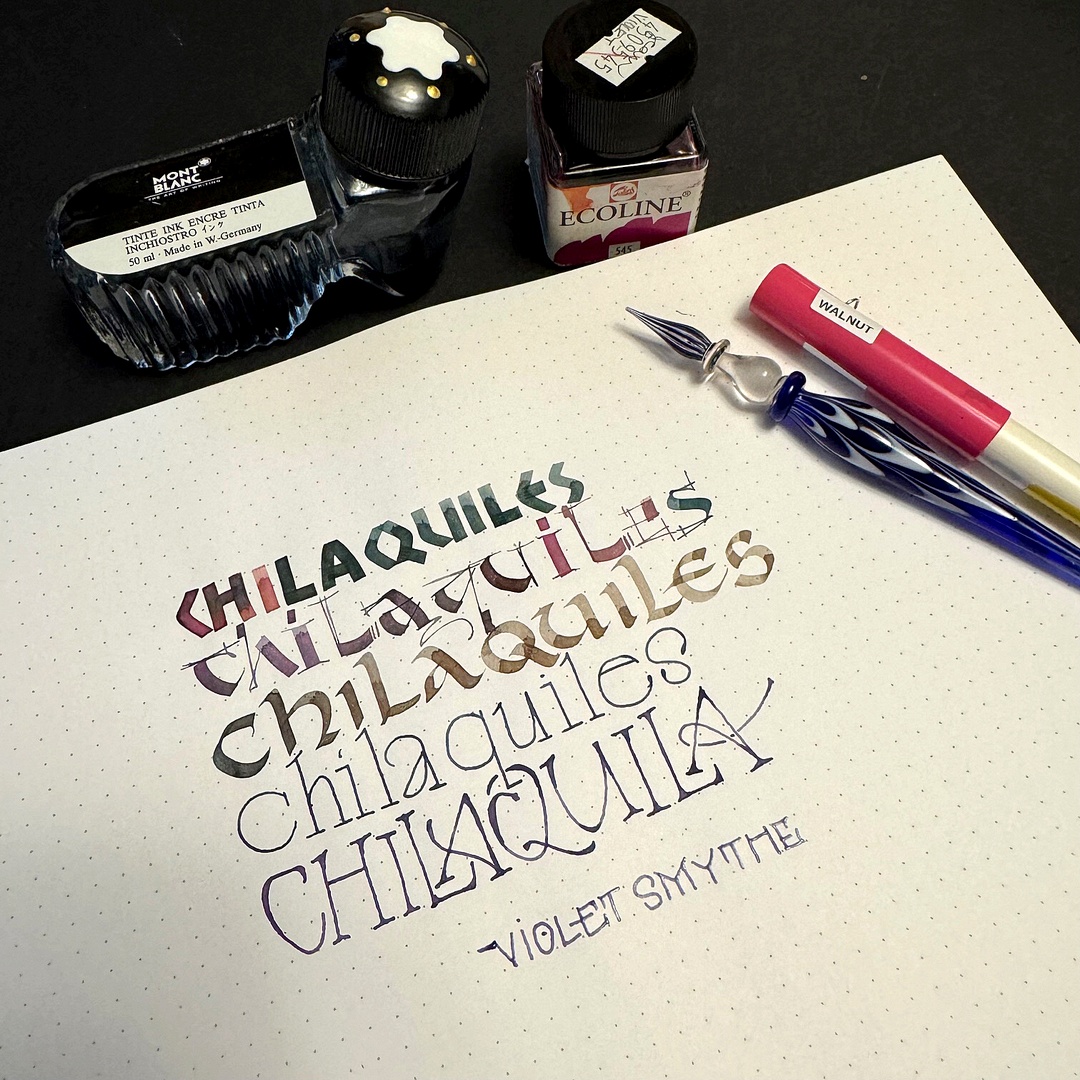 MONT
BLANC
THE ART OF WRITING
TINTE INK ENCRE TINTA
INCHIOSTRO インク
50 ml · Made in W.-Germany
Talens
ECOLINE®
545
WALNUT
CHILAQUILES
chiLaquiLes
chiLAQUILES
chilaquiles
CHILAQUILA
VIOLET SMYTHE